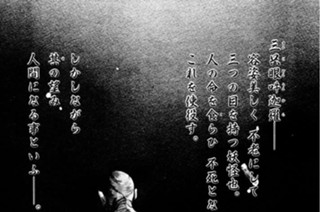 三只眼吽迦羅――
容姿美しく 不老にして
三つの目を持つ妖怪也。
人の命を食らひ 不死とな
これを使役す。
しかしながら
其の望み
人間になる事といふ――。